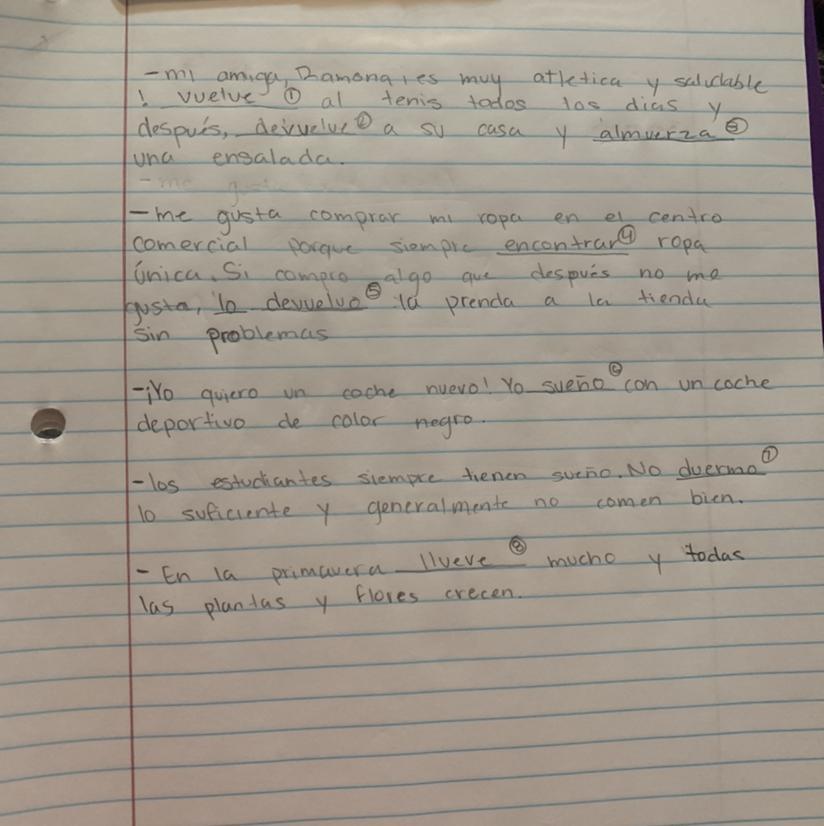 -mi amiga, Ramona, es muy atletica y saludable
! vuelve ① al tenis todos los dias y
después, devuelve ② a su casa y almuerza ③
una ensalada.
-me gusta
-me gusta comprar mi ropa en el centro
comercial porque siempre encontrar ④ ropa
única. Si compro algo que después no me
gusta, lo devuelvo ⑤ la prenda a la tienda
sin problemas
-¡Yo quiero un coche nuevo! Yo sueño ⑥ con un coche
deportivo de color negro.
-los estudiantes siempre tienen sueño. No duermo ⑦
lo suficiente y generalmente no comen bien.
- En la primavera llueve ⑧ mucho y todas
las plantas y flores crecen.